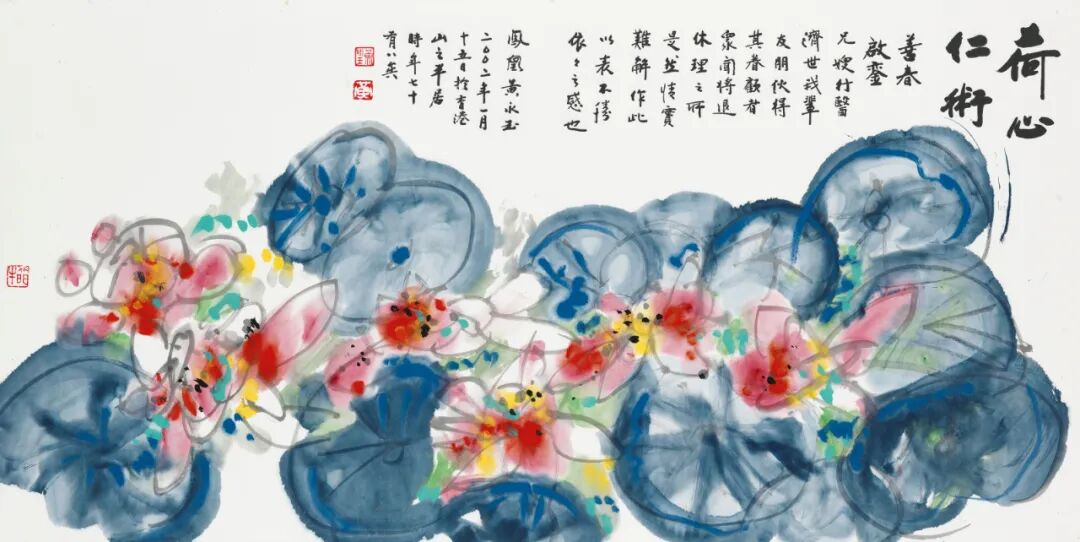 荷心
仁術
善春
啟鑾
兄嫂行醫
濟世我輩
友朋伙得
其眷顧者
眾聞將退
休理之所
是然情實
難解作此
以表不勝
依々之感也
鳳凰黃永玉
二〇〇二年一月
十五日於香港
山之半居
時年七十
有八矣